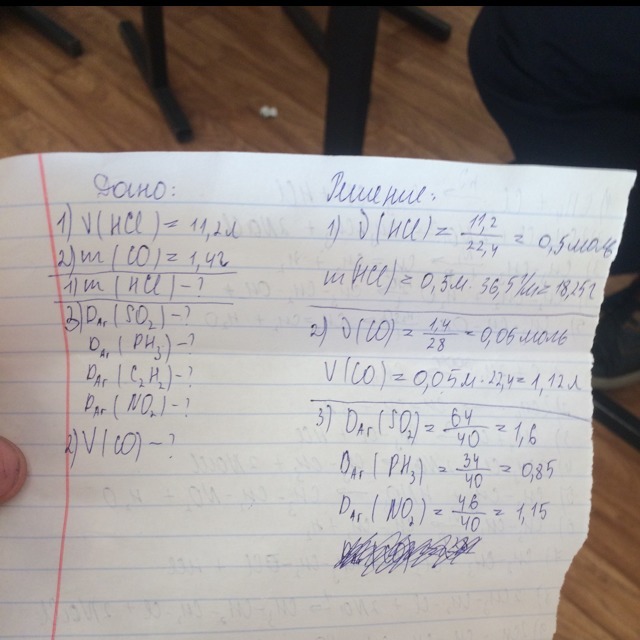 Дано:
1) V(HCl) = 11,2л
2) m(CO) = 1,4г
1) m(HCl) - ?
3) D_Ar(SO₂) - ?
D_Ar(PH₃) - ?
D_Ar(C₂H₂) - ?
D_Ar(NO₂) - ?
2) V(CO) - ?
Решение:
1) ϑ(HCl) = 11,2/22,4 = 0,5 моль
m(HCl) = 0,5м · 36,5г/м = 18,25г
2) ϑ(CO) = 1,4/28 = 0,06 моль
V(CO) = 0,05м · 22,4 = 1,12л
3) D_Ar(SO₂) = 64/40 = 1,6
D_Ar(PH₃) = 34/40 = 0,85
D_Ar(NO₂) = 46/40 = 1,15